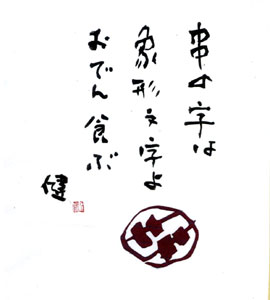 串の字は
象形文字よ
おでん食ぶ
健